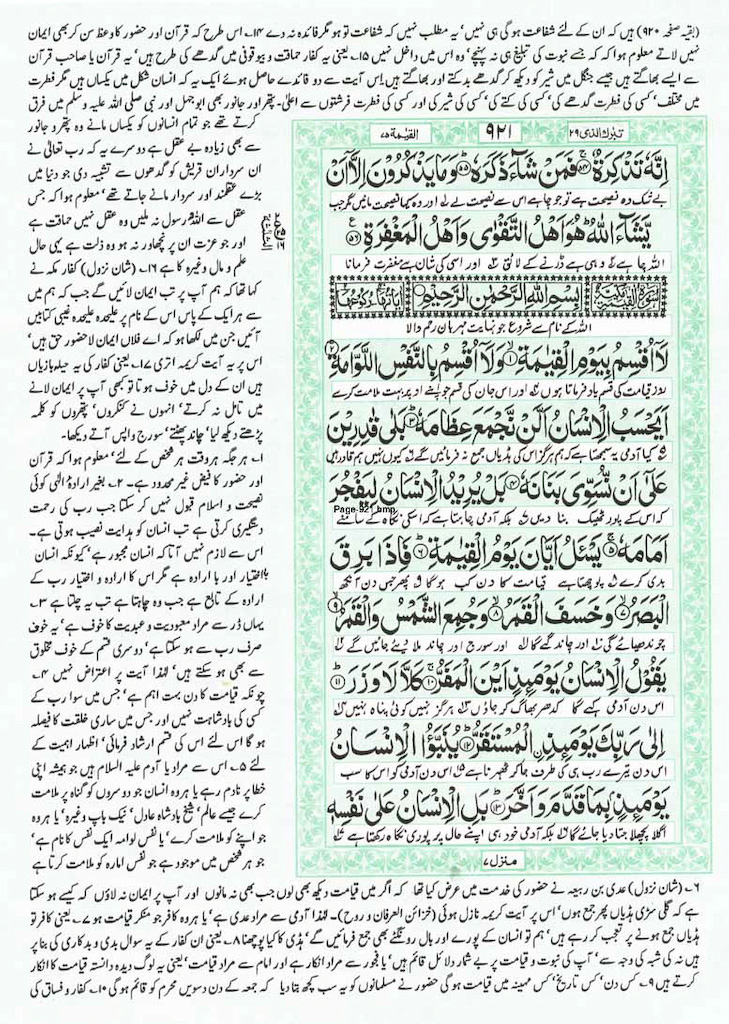 (بقیہ صفحہ ۹۲۰) ہیں کہ ان کے لئے شفاعت ہوگی ہی نہیں' یہ مطلب نہیں کہ شفاعت تو ہو مگر فائدہ نہ دے ۱۴۔ اس طرح کہ قرآن اور حضور کا وعظ سن کر بھی ایمان
نہیں لاتے معلوم ہوا کہ جسے نبوت کی تبلیغ ہی نہ پہنچے' وہ اس میں داخل نہیں ۱۵۔ یعنی یہ کفار حماقت و بیوقوفی میں گدھے کی طرح ہیں' یہ قرآن یا صاحب قرآن
سے ایسے بھاگتے ہیں جیسے جنگل میں شیر کو دیکھ کر گدھے بدکتے اور بھاگتے ہیں۔ اس آیت سے دو فائدے حاصل ہوئے ایک یہ کہ انسان شکل میں یکساں ہیں مگر فطرت
میں مختلف' کسی کی فطرت گدھے کی' کسی کی کتے کی' کسی کی شیر کی اور کسی کی فطرت فرشتوں سے اعلیٰ۔ پتھر اور جانور بھی ابوجہل اور نبی صلی اللہ علیہ وسلم میں فرق
کرتے تھے جو تمام انسانوں کو یکساں مانے وہ پتھر و جانور
سے بھی زیادہ بے عقل ہے دوسرے یہ کہ رب تعالیٰ نے
ان سرداران قریش کو گدھوں سے تشبیہ دی جو دنیا میں
بڑے عقلمند اور سردار مانے جاتے تھے' معلوم ہوا کہ جس
عقل سے اللہ رسول نہ ملیں وہ عقل نہیں حماقت ہے
اور جو عزت ان پر نچھاور نہ ہو وہ ذلت ہے یہی حال
علم و مال وغیرہ کا ہے ۱۶۔ (شان نزول) کفار مکہ نے
کہا تھا کہ ہم آپ پر تب ایمان لائیں گے جب کہ ہم میں
سے ہر ایک کے پاس اس کے نام پر علیحدہ علیحدہ غیبی کتابیں
آئیں جن میں لکھا ہو کہ اے فلاں ایمان لا حضور حق ہیں'
اس پر یہ آیت کریمہ اتری ۱۷۔ یعنی کفار کی یہ حیلہ بازیاں
ہیں ان کے دل میں خوف ہوتا تو کبھی آپ پر ایمان لانے
میں تامل نہ کرتے' انہوں نے کنکروں' پتھروں کو کلمہ
پڑھتے دیکھ لیا' چاند پھٹتے' سورج واپس آتے دیکھا۔
۱۔ ہر جگہ ہر وقت ہر شخص کے لئے' معلوم ہوا کہ قرآن
اور حضور کا فیض غیر محدود ہے۔ ۲۔ بغیر ارادۂ الٰہی کوئی
نصیحت و اسلام قبول نہیں کر سکتا جب رب کی رحمت
دستگیری کرتی ہے تب انسان کو ہدایت نصیب ہوتی ہے۔
اس سے لازم نہیں آتا کہ انسان مجبور ہے' کیونکہ انسان
بااختیار اور با ارادہ ہے مگر اس کا ارادہ و اختیار رب کے
ارادہ کے تابع ہے جب وہ چاہتا ہے تب یہ چلتا ہے ۳۔
یہاں ڈر سے مراد معبودیت و عبدیت کا خوف ہے' یہ خوف
صرف رب سے ہو سکتا ہے' دوسری قسم کے خوف مخلوق
سے بھی ہو سکتے ہیں' لہٰذا آیت پر اعتراض نہیں ۴۔
چونکہ قیامت کا دن بہت اہم ہے' جس میں سوا رب کے
کسی کی بادشاہت نہیں اور جس میں ساری خلقت کا فیصلہ
ہو گا اس لئے اس کی قسم ارشاد فرمائی' اظہار اہمیت کے
لئے ۵۔ اس سے مراد یا آدم علیہ السلام ہیں جو ہمیشہ اپنی
خطا پر نادم رہے یا ہر وہ انسان جو دوسروں کو گناہ پر ملامت
کرے جیسے عالم' شیخ بادشاہ عادل' نیک باپ وغیرہ' یا ہر وہ
جو اپنے کو ملامت کرے' یا نفس لوامہ ایک نفس کا نام ہے'
جو ہر شخص میں موجود ہے جو نفس امارہ کو ملامت کرتا ہے
القیٰمۃ ۷۵ ۹۲۱ تبٰرک الذی ۲۹
اِنَّهٗ تَذْكِرَةٌ ۚ﴿۵۴﴾ فَمَنْ شَآءَ ذَكَرَهٗ ؕ﴿۵۵﴾ وَمَا يَذْكُرُوْنَ اِلَّاۤ اَنْ
بے شک وہ نصیحت ہے تو جو چاہے اس سے نصیحت لے لہ اور وہ کیا نصیحت مانیں مگر جب
يَّشَآءَ اللّٰهُ ؕ هُوَ اَهْلُ التَّقْوٰى وَاَهْلُ الْمَغْفِرَةِ ﴿۵۶﴾
اللہ چاہے وہی ہے ڈرنے کے لائق اور اسی کی شان ہے مغفرت فرمانا
سورۃ القیٰمۃ مکیۃ بِسْمِ اللّٰهِ الرَّحْمٰنِ الرَّحِيْمِ
اللہ کے نام سے شروع جو نہایت مہربان رحم والا
لَاۤ اُقْسِمُ بِيَوْمِ الْقِيٰمَةِ ۙ﴿۱﴾ وَلَاۤ اُقْسِمُ بِالنَّفْسِ اللَّوَّامَةِ ؕ﴿۲﴾
روز قیامت کی قسم یاد فرماتا ہوں اور اس جان کی قسم جو اپنے اوپر بہت ملامت کرے
اَيَحْسَبُ الْاِنْسَانُ اَلَّنْ نَّجْمَعَ عِظَامَهٗ ؕ﴿۳﴾ بَلٰى قٰدِرِيْنَ
کیا آدمی یہ سمجھتا ہے کہ ہم ہرگز اس کی ہڈیاں جمع نہ فرمائیں گے کیوں نہیں ہم قادر ہیں
عَلٰۤى اَنْ نُّسَوِّىَ بَنَانَهٗ ﴿۴﴾ بَلْ يُرِيْدُ الْاِنْسَانُ لِيَفْجُرَ
کہ اس کے پور ٹھیک بنا دیں بلکہ آدمی چاہتا ہے کہ اس کی نگاہ کے سامنے
Page-921.bmp
اَمَامَهٗ ۚ﴿۵﴾ يَسْـَٔلُ اَيَّانَ يَوْمُ الْقِيٰمَةِ ؕ﴿۶﴾ فَاِذَا بَرِقَ
بدی کرے پوچھتا ہے قیامت کا دن کب ہو گا پھر جس دن آنکھ
الْبَصَرُ ۙ﴿۷﴾ وَخَسَفَ الْقَمَرُ ۙ﴿۸﴾ وَجُمِعَ الشَّمْسُ وَالْقَمَرُ ۙ﴿۹﴾
چوندھیائے گی اور چاند گہے گا اور سورج اور چاند ملا دیئے جائیں گے
يَقُوْلُ الْاِنْسَانُ يَوْمَئِذٍ اَيْنَ الْمَفَرُّ ۚ﴿۱۰﴾ كَلَّا لَا وَزَرَ ؕ﴿۱۱﴾
اس دن آدمی کہے گا کدھر بھاگ کر جاؤں ہرگز نہیں کوئی پناہ نہیں
اِلٰى رَبِّكَ يَوْمَئِذِ ۨالْمُسْتَقَرُّ ؕ﴿۱۲﴾ يُنَبَّؤُا الْاِنْسَانُ
اس دن تیرے رب ہی کی طرف جا کر ٹھہرنا ہے اس دن آدمی کو اس کا سب
يَوْمَئِذٍۭ بِمَا قَدَّمَ وَاَخَّرَ ؕ﴿۱۳﴾ بَلِ الْاِنْسَانُ عَلٰى نَفْسِهٖ
اگلا پچھلا جتا دیا جائے گا بلکہ آدمی خود ہی اپنے حال پر پوری نگاہ رکھتا ہے
منزل ۷
۶۔ (شان نزول) عدی بن ربیعہ نے حضور کی خدمت میں عرض کیا تھا کہ اگر میں قیامت دیکھ بھی لوں جب بھی نہ مانوں اور آپ پر ایمان نہ لاؤں کہ کیسے ہو سکتا
ہے کہ گلی سڑی ہڈیاں پھر جمع ہوں' اس پر یہ آیت کریمہ نازل ہوئی (خزائن العرفان و روح)۔ لہٰذا آدمی سے مراد عدی ہے' یا ہر وہ کافر جو منکر قیامت ہو ۷۔ یعنی کافر تو
ہڈیاں جمع ہونے پر تعجب کر رہے ہیں' ہم تو انسان کے پورے اور بال رونگٹے بھی جمع فرمائیں گے' ہڈی کا کیا پوچھنا ۸۔ یعنی ان کفار کے یہ سوال بدی و بدکاری کی بنا پر
ہیں نہ کی شبہ کی وجہ سے' آپ کی نبوت و قیامت پر بے شمار دلائل قائم ہیں' یا فجور سے مراد انکار ہے اور امام سے مراد قیامت' یعنی یہ لوگ دیدہ دانستہ قیامت کا انکار
کرتے ہیں ۹۔ کس دن' کس تاریخ' کس مہینہ میں قیامت ہوگی حضور نے مسلمانوں کو یہ سب کچھ بتا دیا کہ جمعہ کے دن دسویں محرم کو قائم ہوگی ۱۰۔ کفار و فساق کی